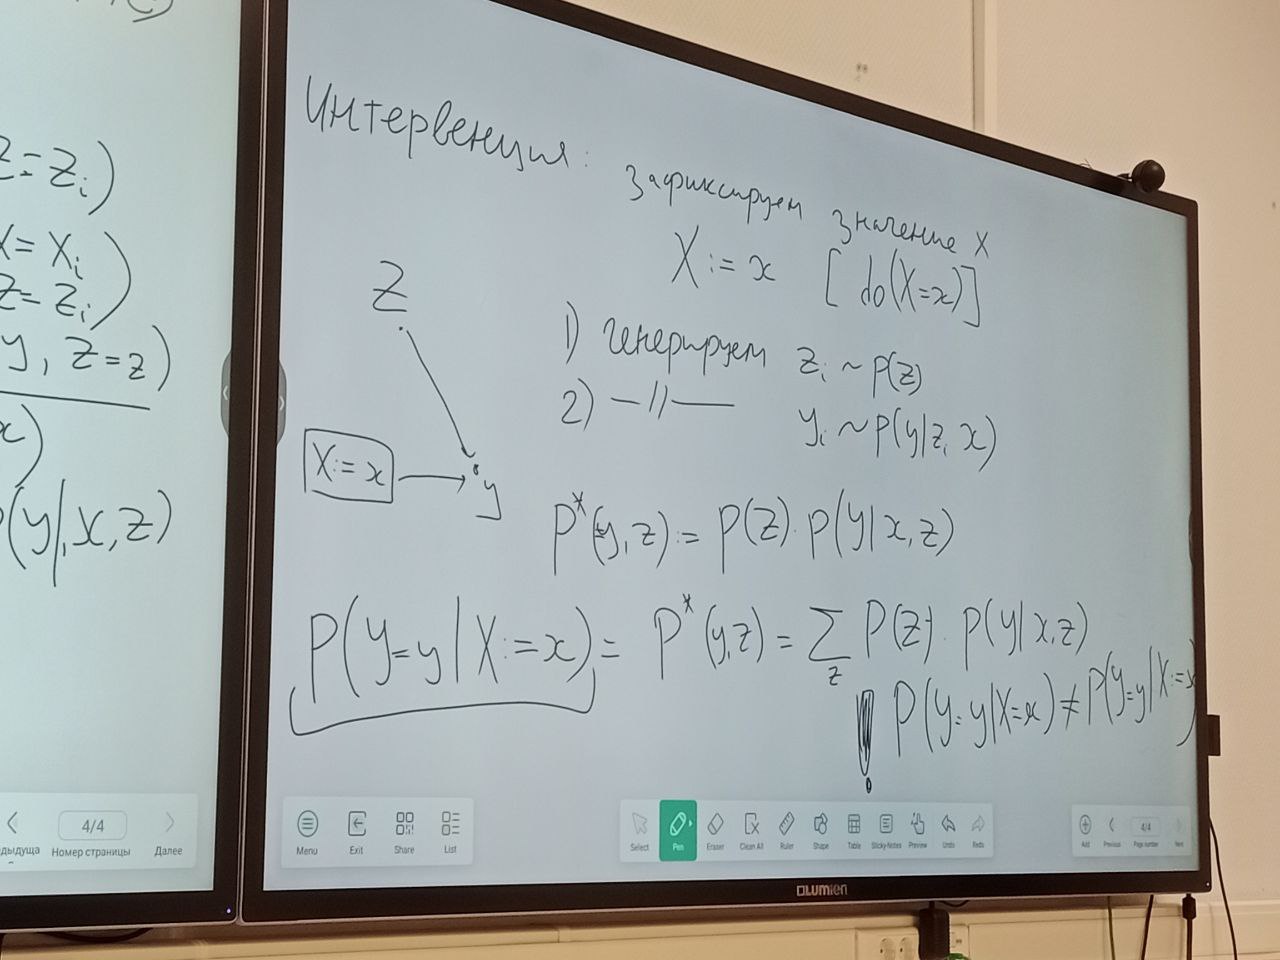 Z=Zi)
X=Xi
Z=Zi)
y, Z=z)
x)
(y|,x,z)
4/4
Номер страницы
Далее
Интервенция: зафиксируем значение X
X:=x [do(X=x)]
Z
1) генерируем zi ~ p(z)
2) —//— yi ~ p(y|zi x)
X:=x
y
P*(y,z) := p(z)·p(y|x,z)
P(Y=y|X:=x) = P*(y,z) = ∑z P(z)·p(y|x,z)
! P(Y=y|X=x) ≠ P(Y=y|X:=x)
Menu Exit Share List
Select Pen Eraser Clean All Ruler Shape Table Sticky-Notes Preview Undo Redo
Add Previous 4/4 Page number Next
Lumien